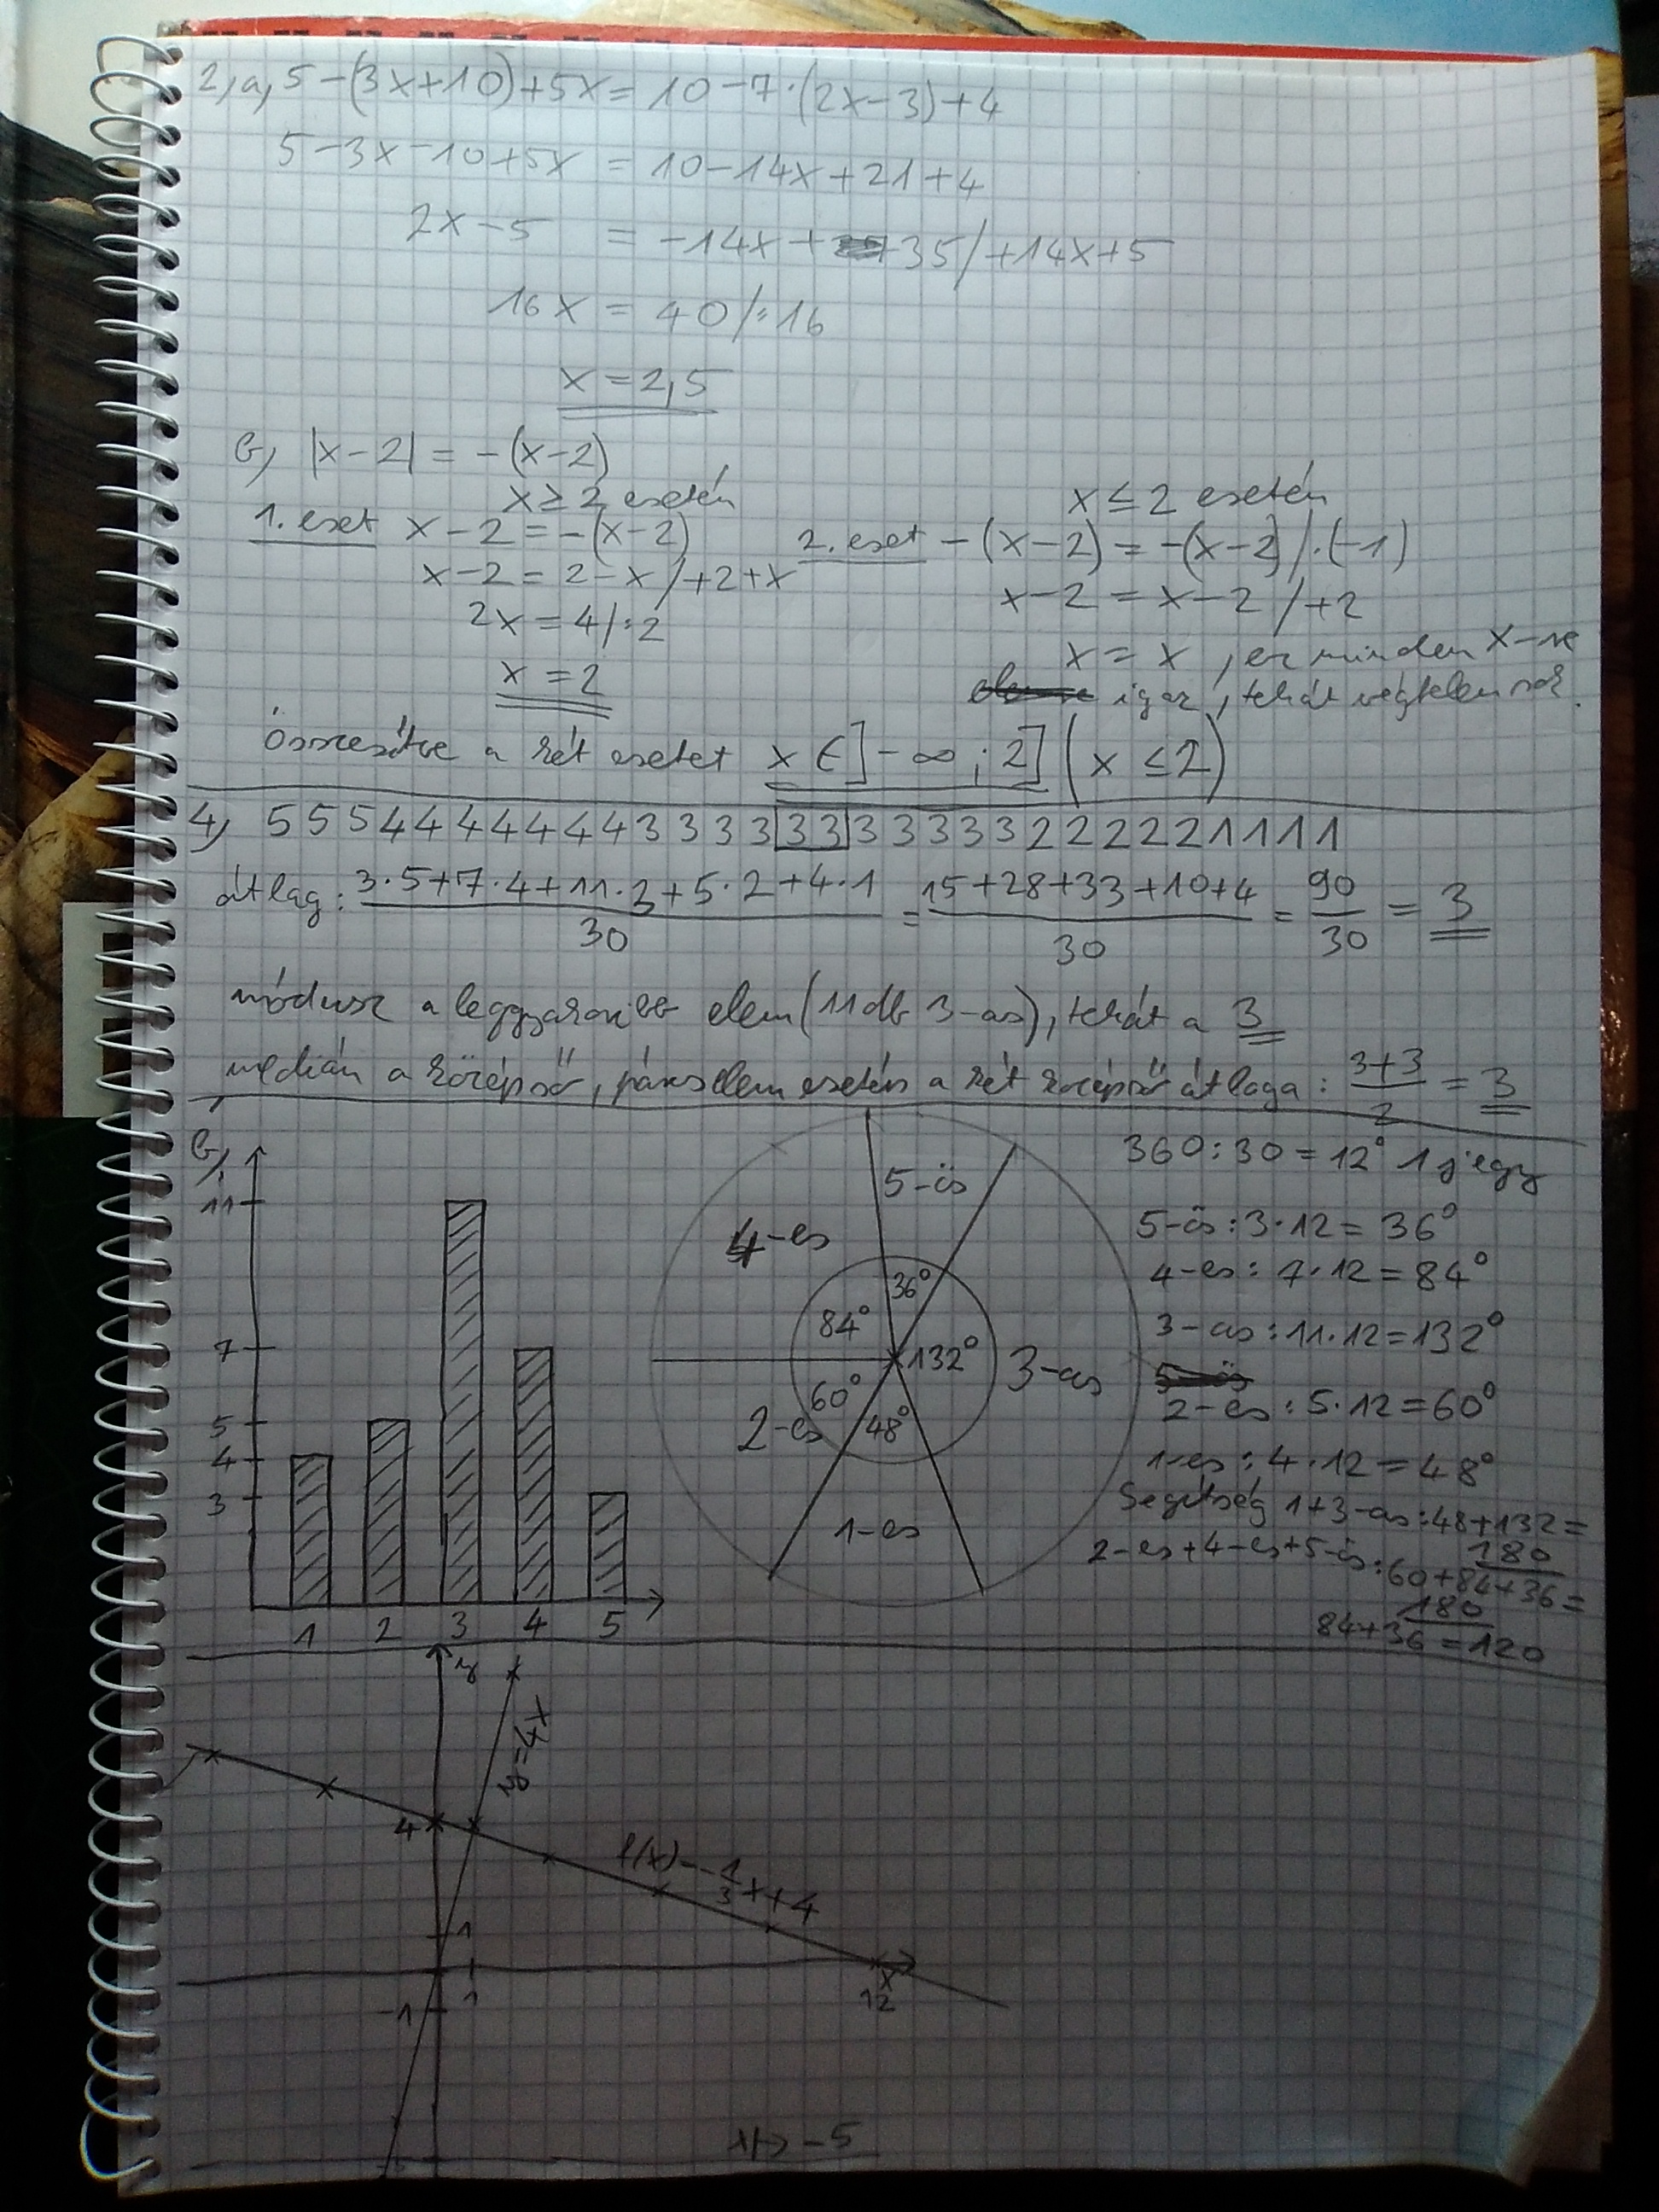 2, a, 5-(3x+10)+5x = 10-7·(2x-3)+4
5-3x-10+5x = 10-14x+21+4
2x-5 = -14x+35 /+14x+5
16x = 40 /:16
x = 2,5
b, |x-2| = -(x-2)
x ≥ 2 esetén
1. eset x-2 = -(x-2)
x-2 = 2-x /+2+x
2x = 4 /:2
x = 2
x ≤ 2 esetén
2. eset -(x-2) = -(x-2) /·(-1)
x-2 = x-2 /+2
x = x, ez minden x-re
igaz, tehát végtelen sok.
összesítve a két esetet x ∈ ]-∞; 2] (x ≤ 2)
4, 5 5 5 4 4 4 4 4 4 4 3 3 3 3 3 3 3 3 3 3 3 2 2 2 2 2 1 1 1 1
átlag: (3·5+7·4+11·3+5·2+4·1)/30 = (15+28+33+10+4)/30 = 90/30 = 3
módusz a leggyakoribb elem (11 db 3-as), tehát a 3
medián a középső, páros elem esetén a két középső átlaga: (3+3)/2 = 3
b,
11
7
5
4
3
1 2 3 4 5
5-ös
4-es
36°
84°
132° 3-as
60°
2-es
48°
1-es
360:30 = 12° 1 jegy
5-ös: 3·12 = 36°
4-es: 7·12 = 84°
3-as: 11·12 = 132°
2-es: 5·12 = 60°
1-es: 4·12 = 48°
Segítség 1+3-as: 48+132 =
180
2-es+4-es+5-ös: 60+84+36 =
180
84+36 = 120
y
y=4x
4
f(x)=-1/3x+4
1
1
-1
x
12
-5
x↦-5